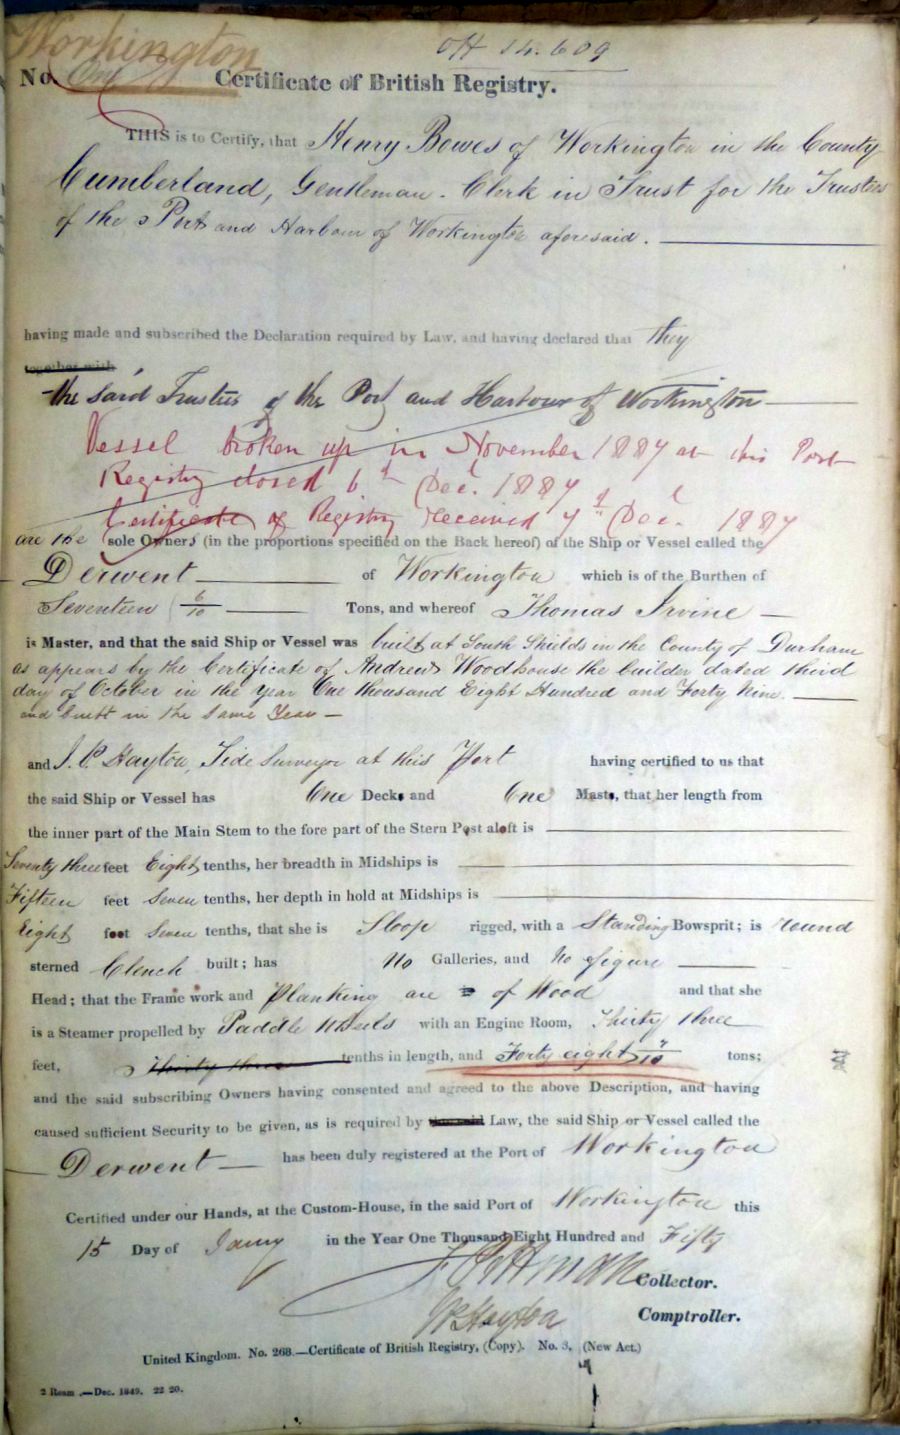 Workington
Off 14.609
No. One Certificate of British Registry.
THIS is to Certify, that Henry Bowes of Workington in the County
Cumberland, Gentleman. Clerk in Trust for the Trustees
of the Port and Harbour of Workington aforesaid.
having made and subscribed the Declaration required by Law, and having declared that they
together with
the said Trustees of the Port and Harbour of Workington
Vessel broken up in November 1887 at this Port
Registry closed 6th Dec. 1887
Certificate of Registry received 7th Dec. 1887
are the sole Owners (in the proportions specified on the Back hereof) of the Ship or Vessel called the
Derwent of Workington which is of the Burthen of
Seventeen 6/10 Tons, and whereof Thomas Irvine
is Master, and that the said Ship or Vessel was built at South Shields in the County of Durham
as appears by the Certificate of Andrew Woodhouse the builder dated third
day of October in the Year One thousand Eight Hundred and Forty Nine
and built in the same Year
and J. P. Hayton, Tide Surveyor at this Port having certified to us that
the said Ship or Vessel has One Decks and One Masts, that her length from
the inner part of the Main Stem to the fore part of the Stern Post aloft is
Seventy three feet Eight tenths, her breadth in Midships is
Fifteen feet Seven tenths, her depth in hold at Midships is
Eight feet Seven tenths, that she is Sloop rigged, with a Standing Bowsprit; is round
sterned Clench built; has no Galleries, and No figure
Head; that the Frame work and Planking are of Wood and that she
is a Steamer propelled by Paddle Wheels with an Engine Room, Thirty three
feet, Thirty three tenths in length, and Forty eight tons;
and the said subscribing Owners having consented and agreed to the above Description, and having
caused sufficient Security to be given, as is required by Law, the said Ship or Vessel called the
Derwent has been duly registered at the Port of Workington
Certified under our Hands, at the Custom-House, in the said Port of Workington this
15 Day of Jany in the Year One Thousand Eight Hundred and Fifty
Collector.
JP Hayton Comptroller.
United Kingdom. No. 268.—Certificate of British Registry, (Copy). No. 3, (New Act.)
2 Ream .—Dec. 1849. 22 20.